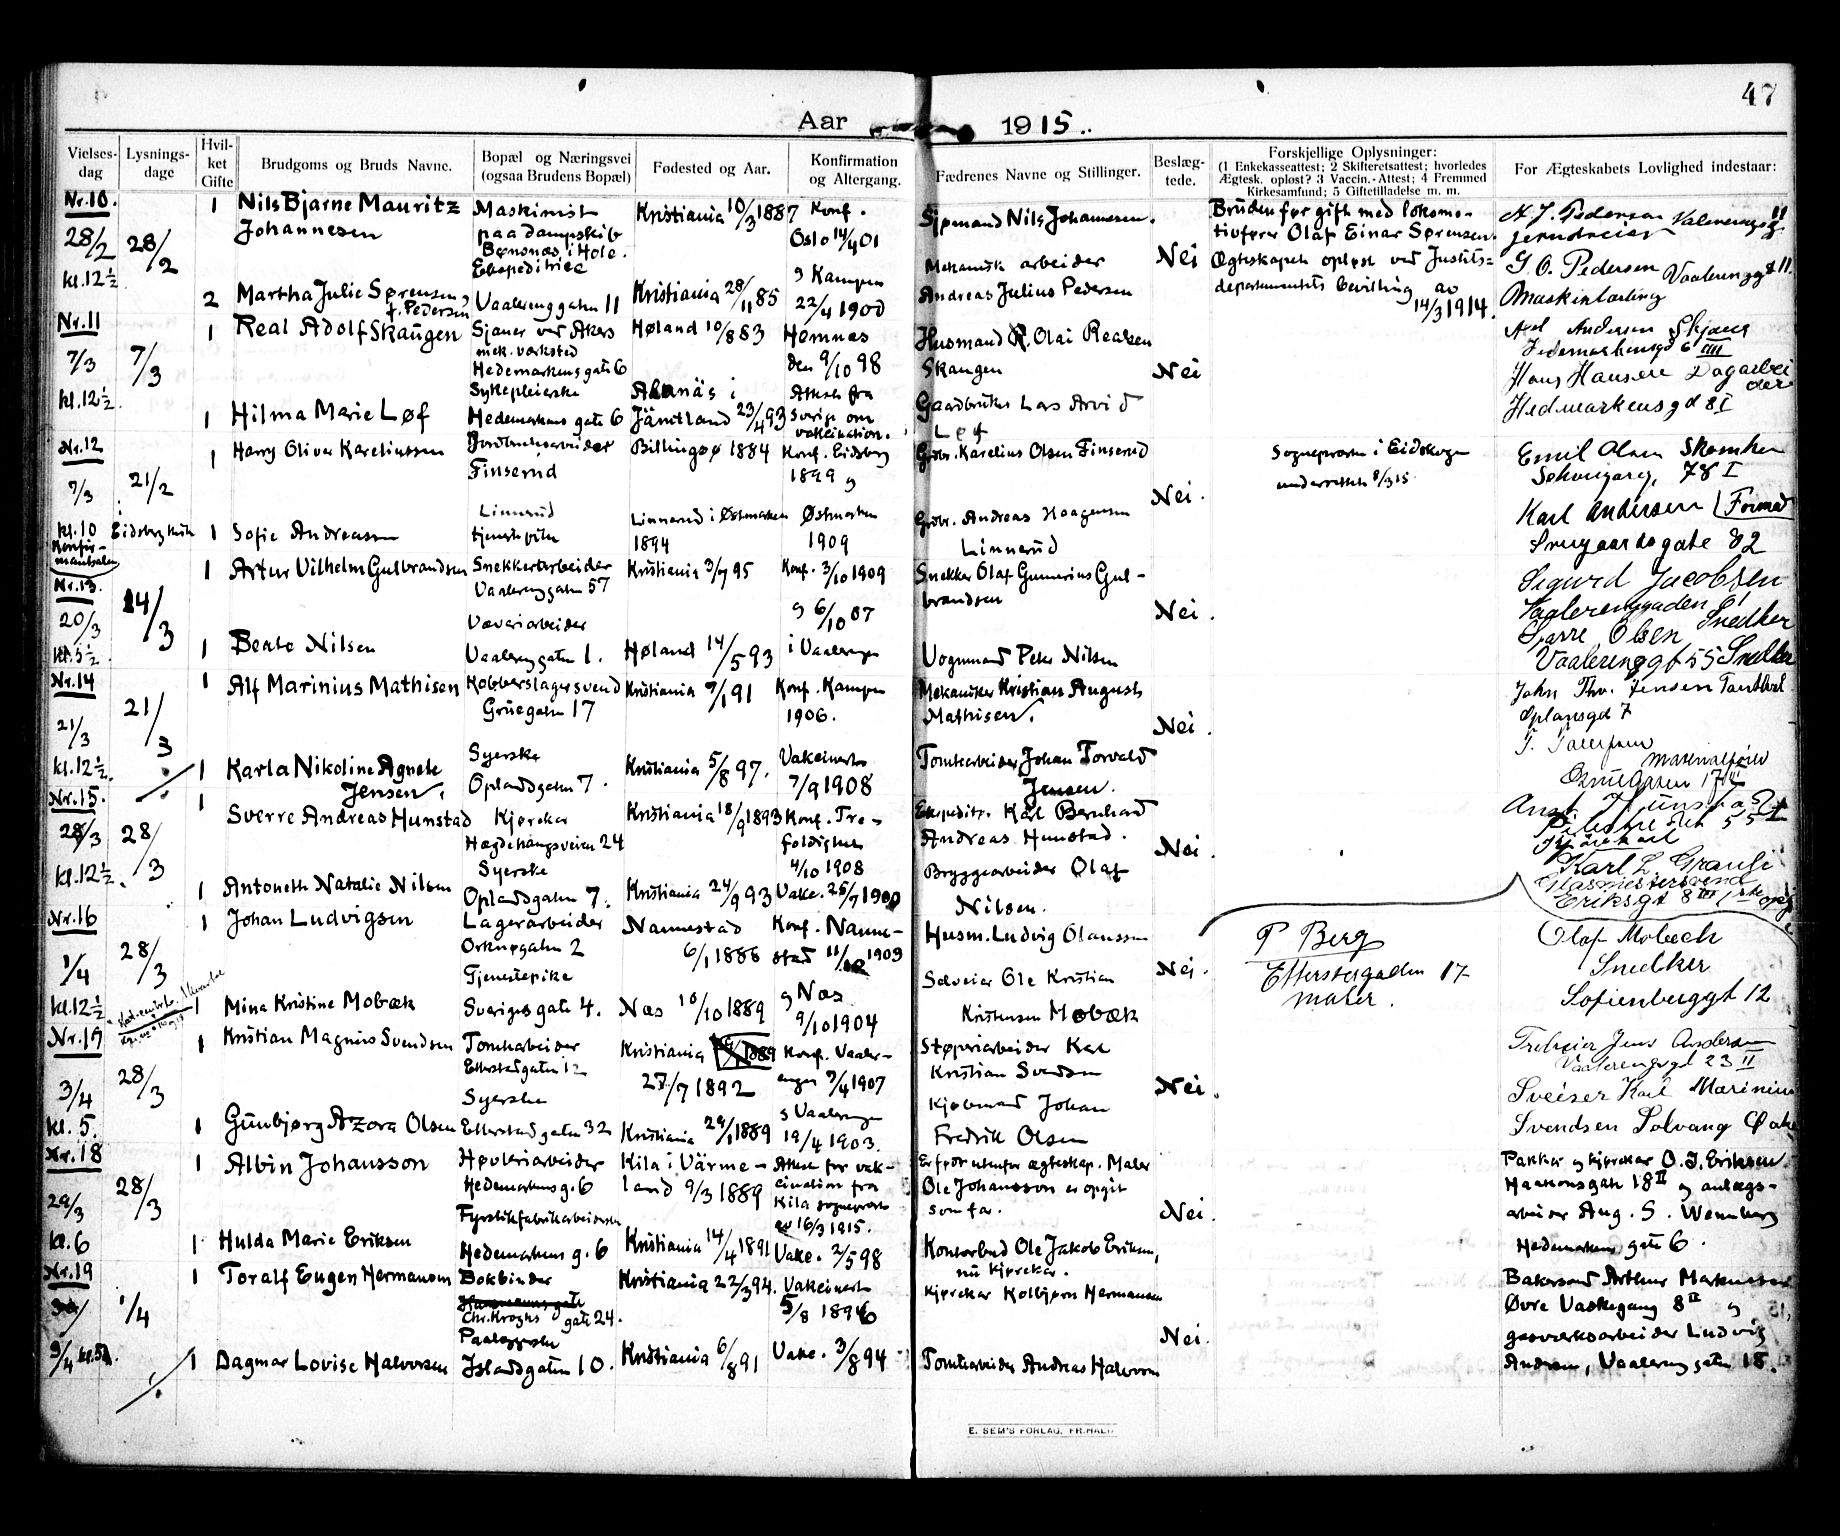 47
Aar 1915.
Vielses-dag
Lysnings-dage
Hvil-ket Gifte
Brudgoms og Bruds Navne.
Bopæl og Næringsvei (ogsaa Brudens Bopæl)
Fødested og Aar.
Konfirmation og Altergang.
Fædrenes Navne og Stillinger.
Beslæg-tede.
Forskjellige Oplysninger:
(1 Enkekasseattest; 2 Skifteretsattest; hvorledes
Ægtesk. opløst? 3 Vaccin.-Attest; 4 Fremmed
Kirkesamfund; 5 Giftetilladelse m. m.
For Ægteskabets Lovlighed indestaar:
Nr. 10.
28/2
kl. 12½
28/2
1
Nils Bjarne Mauritz
Johannesen
Maskinist
paa Dampskib
Bønsnæs i Hole.
Kristiania 10/3 1887
Konf.
Oslo 14/4 01
Sjømand Nils Johannesen.
Nei
Bruden før gift med lokomo-
tivfører Olaf Einar Sørensen.
Ægteskapet opløst ved Justits-
departementets bevilling av
14/3 1914.
2
Martha Julie Sørensen,
f. Pedersen
Ekspeditrice
Vaalerenggaten 11
Kristiania 28/11 85
g Kampen
22/4 1900
Mekanisk arbeider
Andreas Julius Pedersen
J. O. Pedersen Vaalerenggt 11.
Nr. 11
7/3
kl. 12½
7/3
1
Real Adolf Skaugen
Sjauer ved Akers
mek. verksted
Hedemarkens gate 6
Høland 10/8 83
Hemnæs
den 9/10 98
Husmand R. Olai Realsen
Skaugen
Nei
1
Hilma Marie Løf
Sykepleierske
Hedemarkens gate 6
Alanäs i
Jämtland 23/4 93
Attest fra
Sverige om
vakcination.
Gaardbruker Lars Arvid
Løf
Hans Hansen Dagarbei
der
Hedmarkensgd 8 I
Nr. 12
7/3
kl. 10
Konfir-
mantsalen
21/2
Eidsberg kirke
1
Harry Oliver Kareliussen
Jordbruksarbeider
Finserud
Billingsø 1884
Konf. Eidsberg
1899 g
Grbr. Karelius Olsen Finserud
Nei.
Sogneprесten i Eidskogen
underrettet 8/3 15
Emil Olsen Skomker
1
Sofie Andreasen
Linnerud
tjenestepike
Linnerud i Østmarken
1894
Østmarken
1909
Grbr. Andreas Haagensen
Linnerud
Karl Andersen Formand
Smugaardsgate 82
Nr. 13.
20/3
kl. 5½
14/3
1
Artur Vilhelm Gulbrandsen
Snekkerarbeider
Vaalerenggaten 57
Kristiania 3/7 95
Konf. 3/10 1909
Snekker Olaf Gunnerius Gul-
brandsen
Nei.
Sigurd Jacobsen
Vaalerenggaden 61
Snedker
1
Beate Nilsen
Væveriarbeider
Vaalerenggaten 1.
Høland 14/5 93
g 6/10 07
i Vaalerengen
Vognmand Peter Nilsen
Sjarre Olsen
Vaalerenggt 55 Snedker
Nr. 14
21/3
kl. 12½.
21/3
1
Alf Marinius Mathisen
Kobberslagersvend
Grüegaten 17
Kristiania 7/1 91
Konf. Kampen
1906.
Mekaniker Kristian August
Mathisen.
Nei.
John Thv. Jensen
Oplansgd 7
1
Karla Nikoline Agnete
Jensen.
Syerske
Oplandsgaten 7.
Kristiania 5/8 97.
Vakcinert
7/9 1908
Tomtearbeider Johan Torvald
Jensen.
Nr. 15.
28/3
kl. 12½.
28/3
1
Sverre Andreas Hunstad
Kjørekar
Hegdehaugsveien 24
Kristiania 18/9 1893
Konf. Tre-
foldighet
4/10 1908
Ekspeditr. Karl Bernhard
Andreas Hunstad.
Nei.
1
Antonette Natalie Nilsen
Syerske
Oplandsgaten 7.
Kristiania 24/9 93
Vakc. 25/7 1900
Bryggearbeider Olaf
Nilsen.
Nr. 16
1/4
kl. 12½
28/3
1
Johan Ludvigsen
Lagerarbeider
Orknøgaten 2
Nannestad
6/1 1886
Konf. Nanne-
stad 11/10 1903
Husm. Ludvig Olaussen
Nei.
P Berg
Etterstadgaden 17
maler.
Olaf Mobech
Snedker
Sofienberggt 12
1
Mina Kristine Mobæk
Tjenestepike
Sverigesgate 4.
Næs 10/10 1889
g Næs
9/10 1904
Selveier Ole Kristian
Kristensen Mobæk
Nr. 17
3/4
kl. 5.
28/3
1
Kristian Magnus Svendsen
Tomtearbeider
Etterstadgaten 12
Kristiania
27/7 1892
Konf. Vaaler-
engen 7/4 1907
Støperiarbeider Karl
Kristian Svendsen
Nei.
Vaalerengsgt 23 II
1
Gunbjørg Azora Olsen
Syerske
Etterstadgaten 32
Kristiania 29/1 1889
g Vaalerengen
19/4 1903.
Kjøbmand Johan
Fredrik Olsen
Sveiser Karl Marinius
Svendsen Solvang
Nr. 18
29/3
kl. 6
28/3
1
Albin Johansson
Høvleriarbeider
Hedemarkens g. 6
Kila i Värme-
land 9/3 1889
Attest for vak-
cination fra
Kila sogneprest
av 16/3 1915.
Er født utenfor ægteskap. Maler
Ole Johansson er opgit
som far.
Nei.
Pakker og kjørekar O. J. Eriksen
Haakonsgate 18 II og anlægs-
arbeider Aug. S. Wennberg
Hedemarkens gate 6.
1
Hulda Marie Eriksen
Fyrstikfabrikarbeiderske
Hedemarkens g. 6
Kristiania 14/4 1891
Vakc. 2/5 98
Kontorbud Ole Jakob Eriksen,
nu kjørekar.
Nr. 19
9/4 kl. 5½.
1/4
1
Toralf Eugen Hermansen
Bokbinder
Chr. Kroghs gate 24.
Kristiania 22/3 94.
Vakcinert
5/8 1896
Kjørekar Kolbjørn Hermansen
Nei.
Bakersvend Arthur Markussen
Øvre Vaskegang 8 II og
gasværksarbeider Ludvig
Andresen, Vaalereng gaten 18.
1
Dagmar Lovise Halvorsen
Paalæggerske
Islandsgaten 10.
Kristiania 6/8 91
Vakc. 3/8 94
Tomtearbeider Andreas Halvorsen
E. SEM'S FORLAG, FR.HALD